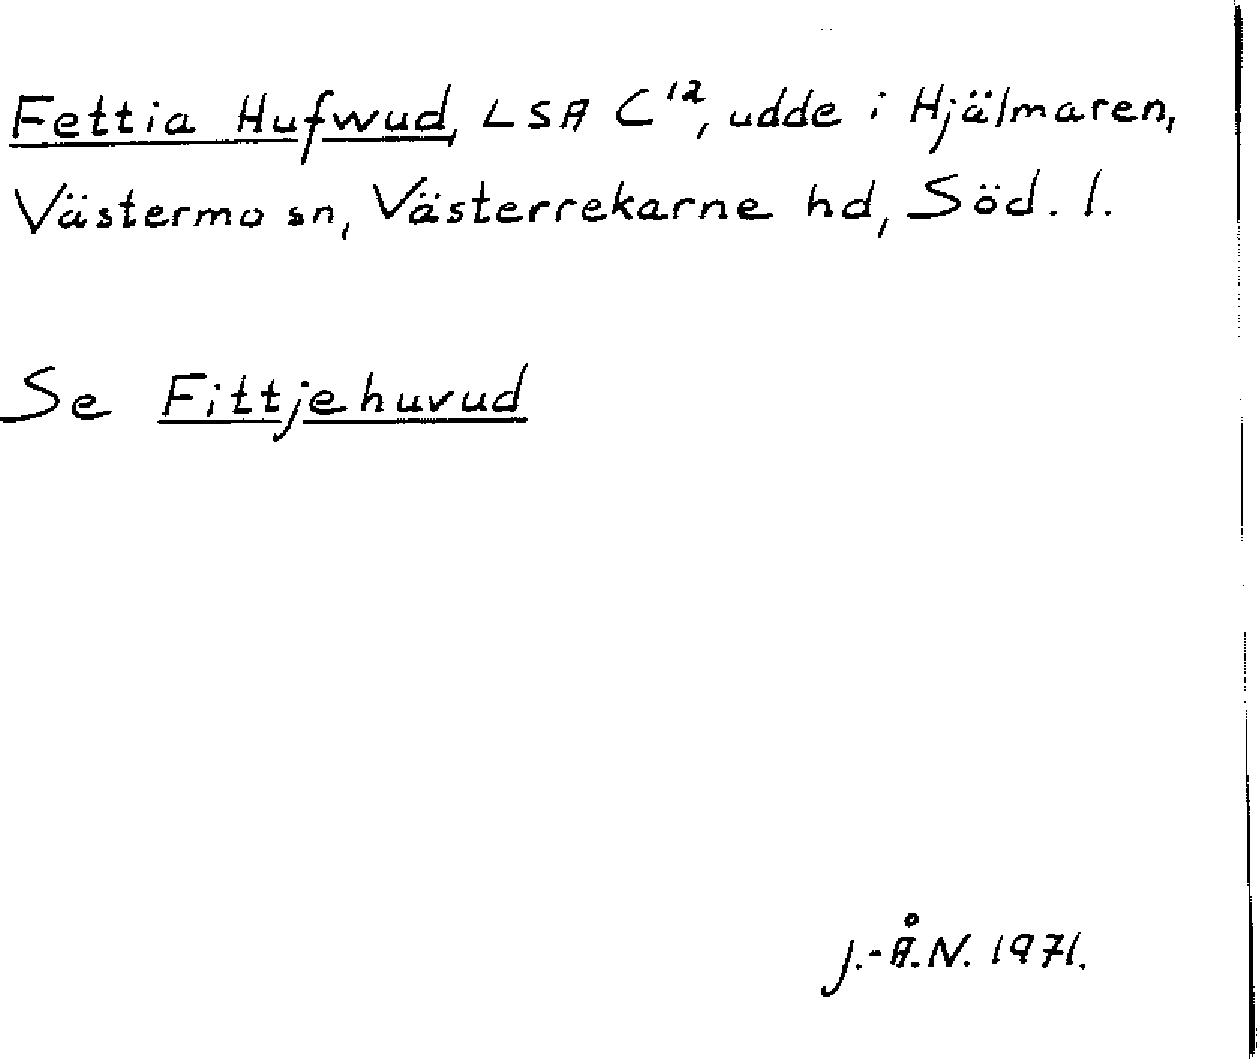 Fettia Hufwud, LSA C¹², udde i Hjälmaren,
Västermo sn, Västerrekarne hd, Söd. l.
Se Fittjehuvud
J.-Å.N. 1971.